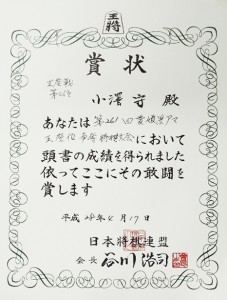 王将
賞状
小澤守 殿
あなたは第261回
王座位
将棋大会において
頭書の成績を得られました
依ってここにその敢闘を
賞します
平成28年4月17日
日本将棋連盟
会長 谷川浩司